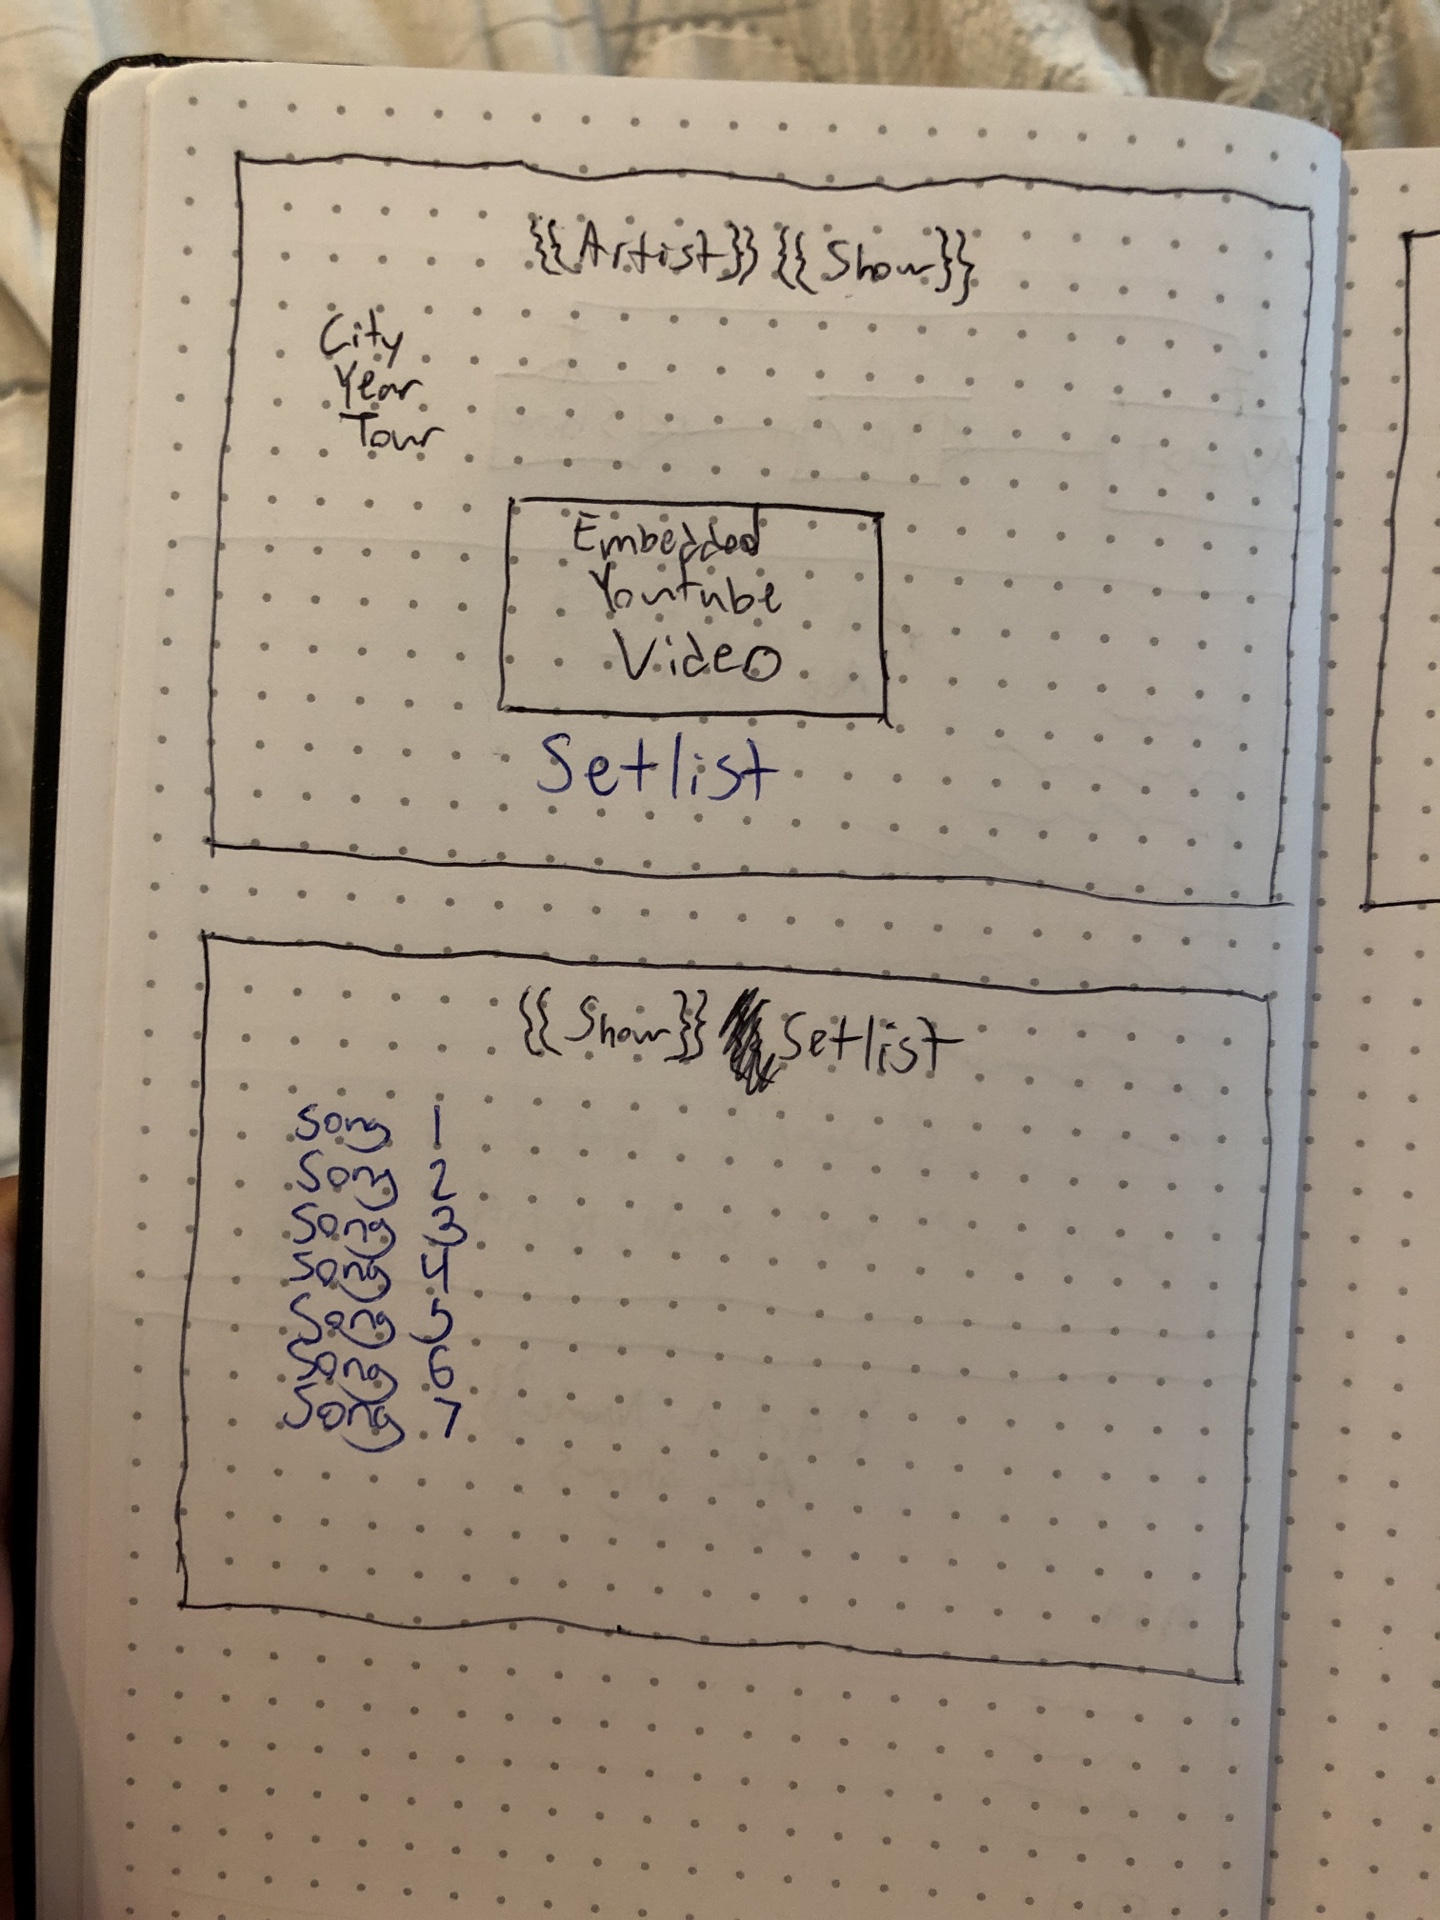 {{Artist}} {{Show}}
City
Year
Tour
Embedded
Youtube
Video
Setlist
{{Show}} Setlist
Song 1
Song 2
Song 3
Song 4
Song 5
Song 6
Song 7